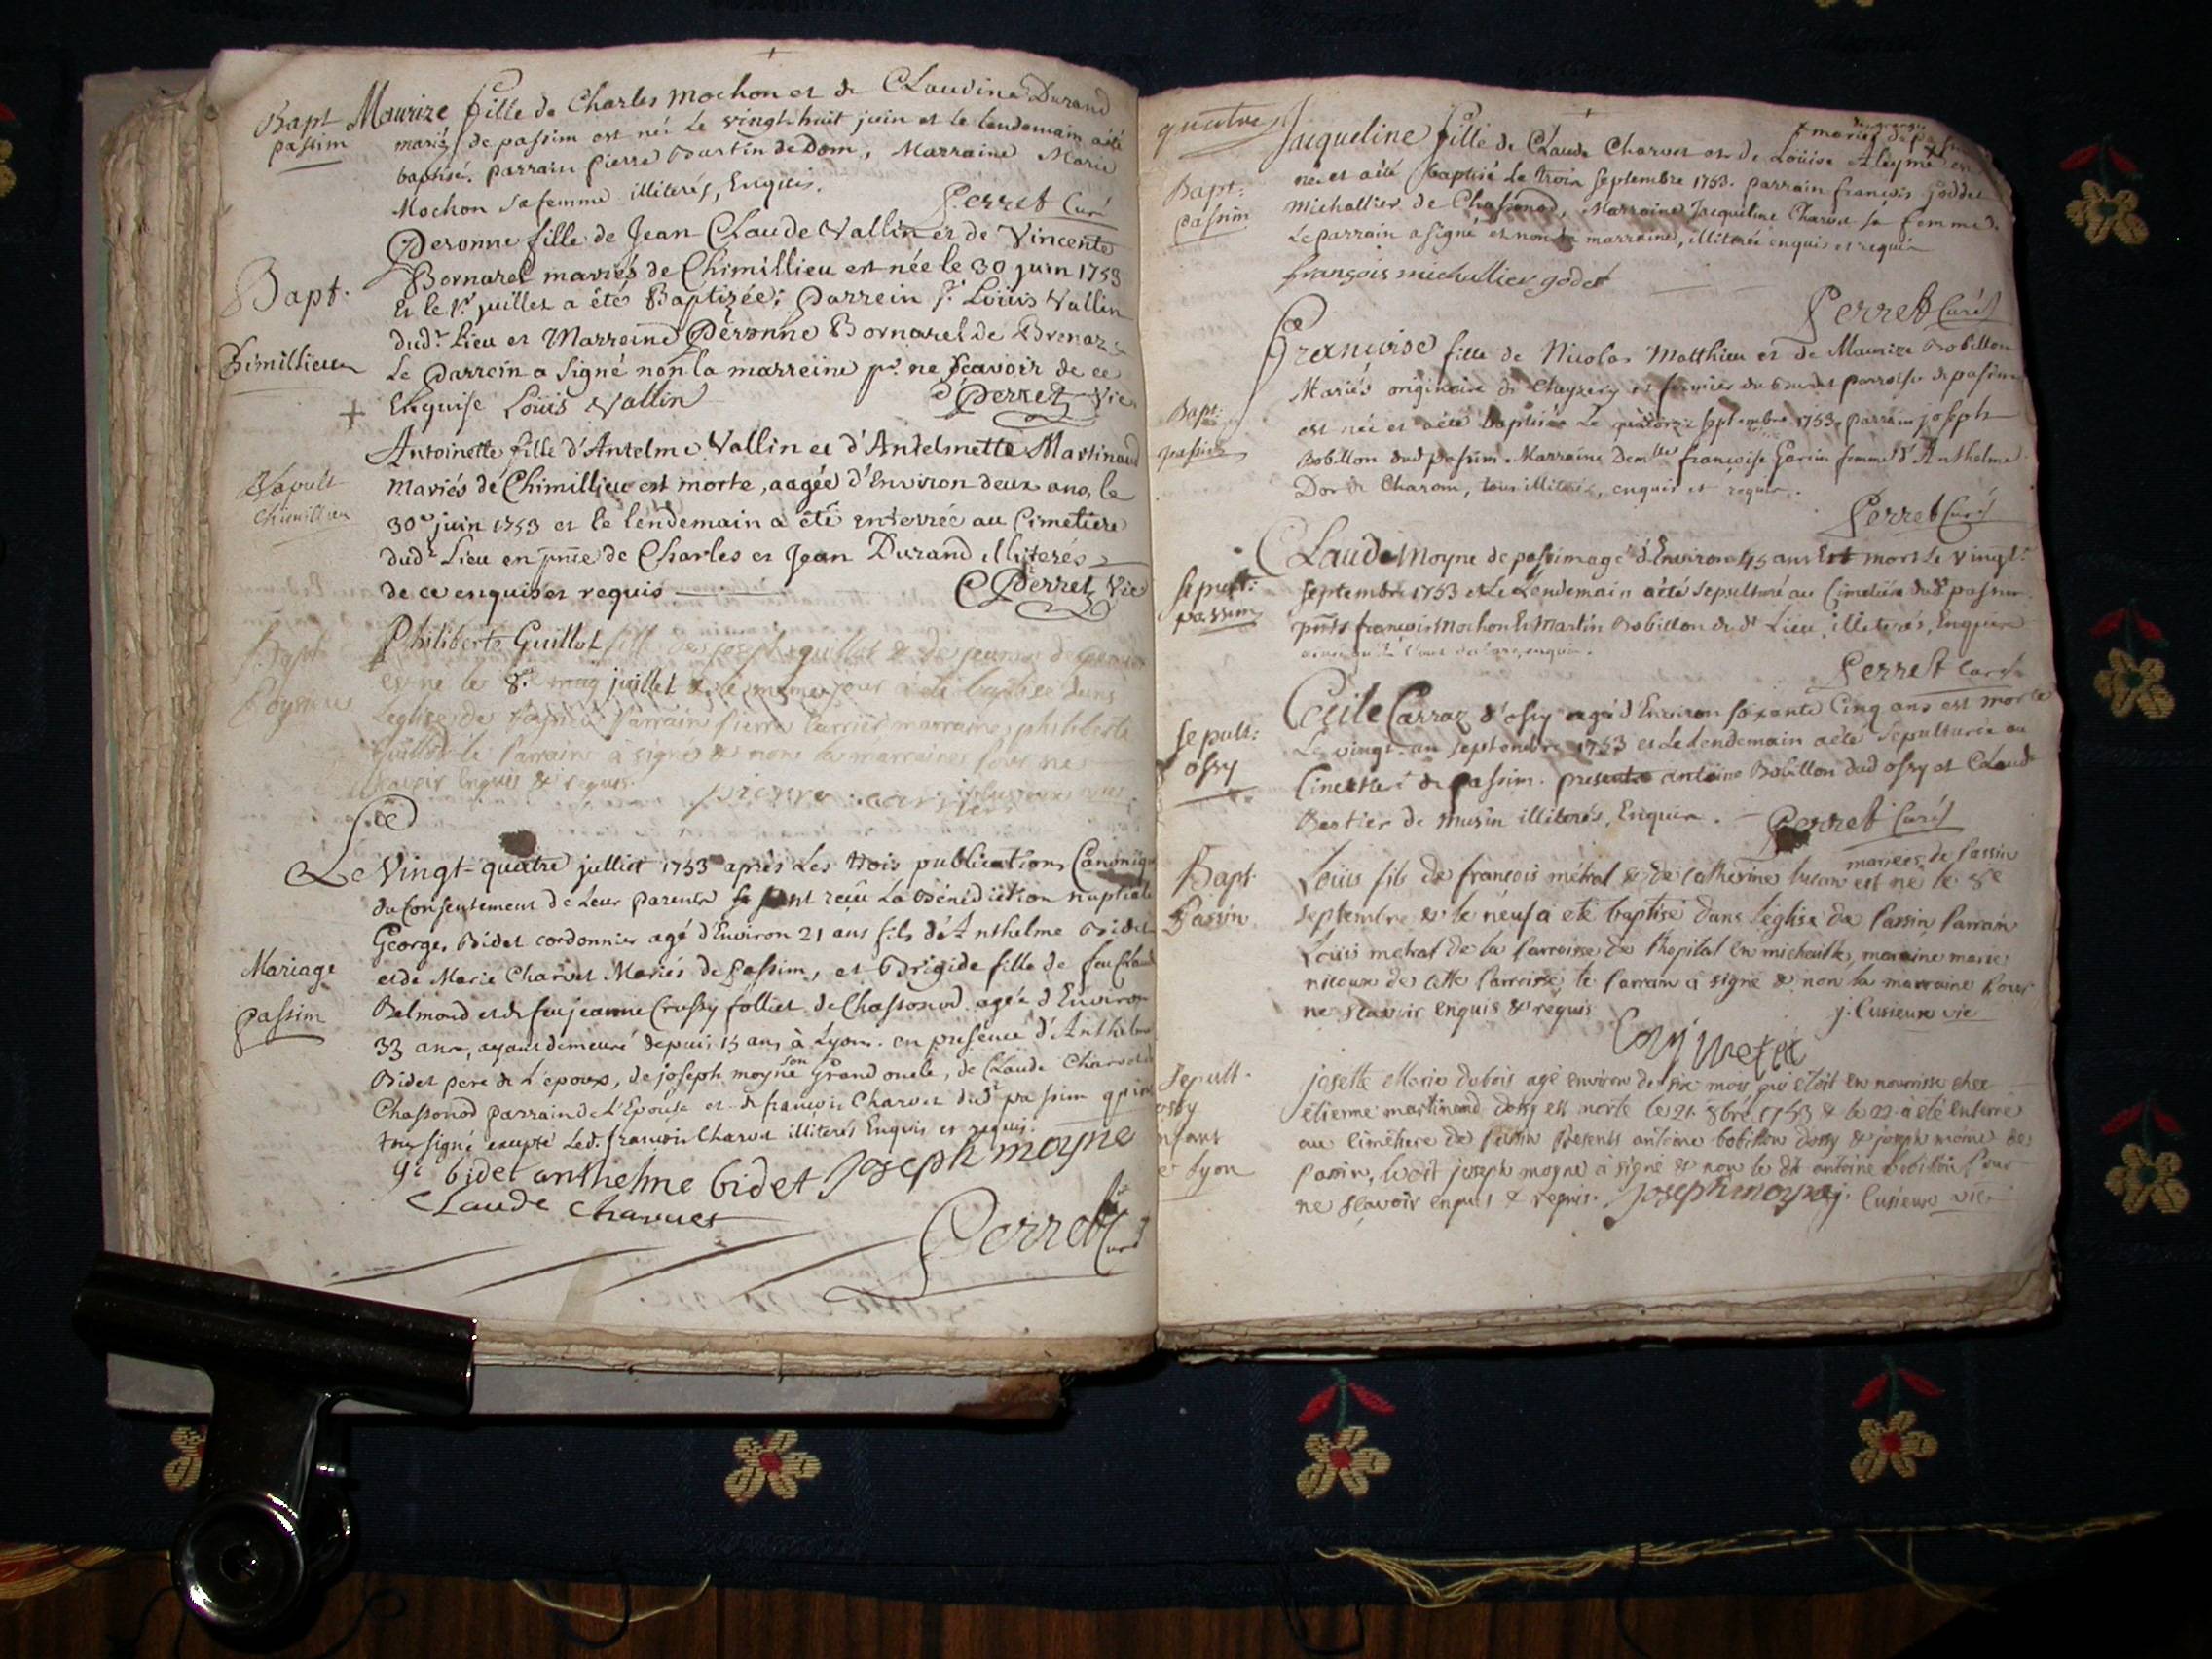 Bapt
passim
Maurize fille de Charles Mochon et de Claudine Durand
mariés de passim est née le vingt-huit juin et le lendemain a été
baptisé. parrain pierre Burtin de Dom, Marraine Marie
Mochon sa femme illiterés, Enquis.
Perret Curé
Bapt.
Chimillieu
Peronne fille de Jean Claude Vallin et de Vincente
Bornarel mariés de Chimillieu est née le 30 juin 1753
Et le 1r juillet a été Baptizée; Parrein Sr Loüis Vallin
dudt Lieu et Marreine Peronne Bornarel de Brenaz
Le Parrein a Signé non la marreine pr ne sçavoir de ce
Enquise Loüis Vallin
Perret Vic
+
Sepult
Chimillieu
Antoinette fille d'Antelme Vallin et d'Antelmette Martinand
Mariés de Chimillieu est morte, aagée d'Environ deux ans, le
30e juin 1753 et le lendemain a été enterrée au Cimetiere
dudt Lieu en pnce de Charles et Jean Durand illiterés
de ce enquis et requis
Perret Vic
Bapt
Poysieu
Philiberte Guillot fille de joseph guillot & de jeanne
est né le 8e juillet & le meme jour a été baptisée dans
L'eglise de Parrain pierre Carrier marraine philiberte
guillot le Parrain à signé & non la marraine pour ne
sçavoir Enquis & requis.
pierre carrier
j. Cusieux vic
Mariage
passim
Le Vingt-quatre juillet 1753 après Les trois publications Canoniq
du Consentement de Leur Parents se sont reçu La Bénédiction nuptiale
George Bidet cordonnier agé d'Environ 21 ans fils d'Anthelme Bidet
et de Marie Charvet Mariés de passim, et Brigide fille de feu Claude
Belmond et de feu jeanne Crussy folliet de Chassonod agée d'Environ
33 ans, ayant demeuré depuis 15 ans à Lyon. en presence d'Anthelme
Bidet pere de L'epoux, de joseph moyne son Grand oncle, de Claude Charvet de
Chassonod parrain de L'Epouse et de françois Charvet dudt passim qui ont
tous signé excepté Led. françois Charvet illiterés Enquis et requis.
ge bidet anthelme bidet Joseph moyne
Claude charvet
Perret Curé
quatre
Bapt:
passim
Jacqueline fille de Claude Charvet et de Loüise Aleyme
mariés de
née et a été baptisé Le trois septembre 1753. parrain françois Goddet
Michallier de Chassonod, Marraine Jacqueline Charvet sa femme.
Le parrain a signé et non la marraine, illiterée enquis et requis
françois michallier godet
Perret Curé
Bapt:
passim
Françoise fille de Nicolas Matthieu et de Maurize Bobillon
Mariés originaire de Cheyzery et fermier du paroisse de passim
est née et a été baptisée Le quatorze septembre 1753. parrain joseph
Bobillon dudt passim. Marraine Demlle françoise Garin femme d'Anthelme
Dor de Charon, tous illiterés, enquis et requis.
Perret Curé
Sepult:
passim
Claude Moyne de passim agé d'Environ 45 ans Est mort Le Vingt
septembre 1753 et Le Lendemain a été sepulturé au Cimetiére dudt passim
pnts françois Mochon Et Martin Bobillon dudt Lieu, illiterés, Enquis
Perret Curé
Sepult:
ossy
Cecile Carraz d'ossy agé d'Environ soixante Cinq ans est morte
Le vingt-un septembre 1753 et Le lendemain a été sepulturée au
Cimettiere de passim. presents antoine Bobillon dud ossy et Claude
Bertier de Musin illiterés, Enquis.
Perret Curé
Bapt
Passin
mariées de Passin
Loüis fils de françois métral & de Catherine lucan est né le 8e
septembre & le neuf a eté baptisé dans l'eglise de Passin Parrain
Loüis metral de la Parroisse de l'hopital en michaille, maraine marie
nicoux de cette Parroisse le Parrain a signé & non la marraine Pour
ne scavoir enquis & requis
j. Cusieux vic
Loÿ metral
Sepult.
ossy
enfant
de Lyon
josette Marie dubois agé environ de six mois qui etoit en nourrisse chez
étienne martinand dossy est morte le 21. 8bre 1753 & le 22 a été enterré
au cimétiere de Passin Presents antoine bobillon dossy & joseph moine de
Passin, ledit joseph moyne a signé & non le dit antoine bobillon Pour
ne sçavoir enquis & requis. Joseph moyne j. Cusieux vic